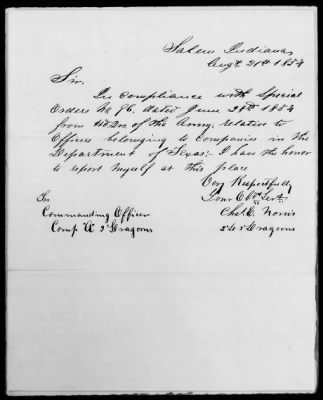 Salem Indiana,
Augt. 21st 1854
Sir,
In compliance with Special
Orders No 96. dated June 26th 1854
from Hd. Qrs of the Army, relative to
Officers belonging to companies in the
Department of Texas; I have the honor
to report myself at this place
Very Respectfully
Your Obt. Sert.
Chs. E. Norris
2d Dragoons
To
Commanding Officer
Comp. 2d Dragoons